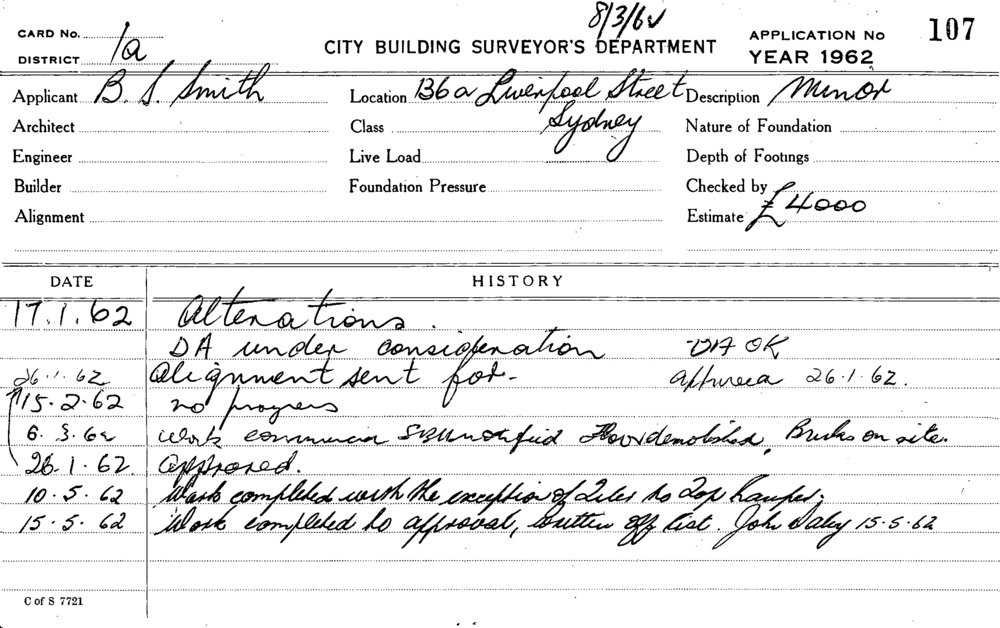 8/3/62
CARD No.
CITY BUILDING SURVEYOR'S DEPARTMENT
APPLICATION No 107
DISTRICT 1a
YEAR 1962
Applicant B. S. Smith
Location 136a Liverpool Street
Description Minor
Architect
Class Sydney
Nature of Foundation
Engineer
Live Load
Depth of Footings
Builder
Foundation Pressure
Checked by
Alignment
Estimate £4000
DATE HISTORY
17.1.62 Alterations.
DA under consideration DA OK
26.1.62 Alignment sent for- 26.1.62.
15.2.62 no progress
6.3.62 Work demolished, Bricks on site.
26.1.62 Approved.
10.5.62 Work completed with the exception of Tiles to Top
15.5.62 Work completed to approval, written off list. John Daley 15.5.62
C of S 7721